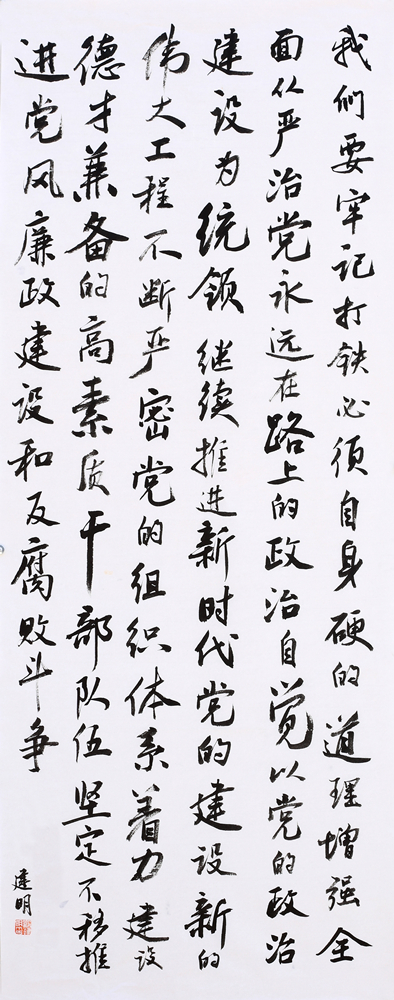 我们要牢记打铁必须自身硬的道理增强全
面从严治党永远在路上的政治自觉以党的政治
建设为统领继续推进新时代党的建设新的
伟大工程不断严密党的组织体系着力建设
德才兼备的高素质干部队伍坚定不移推
进党风廉政建设和反腐败斗争
建明